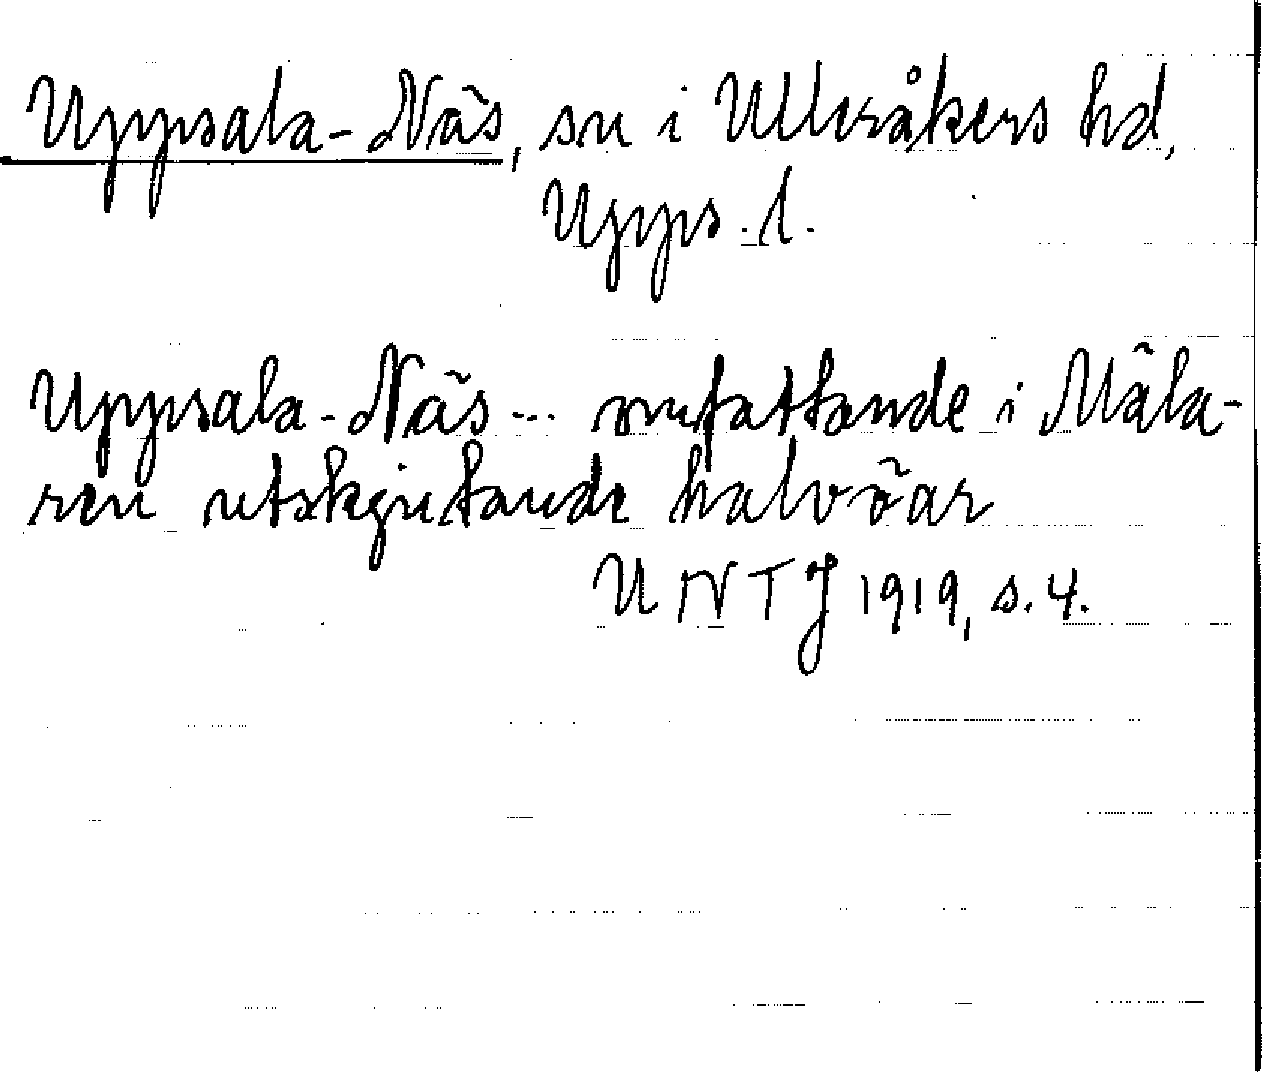 Uppsala-Näs, sn i Ulleråkers hd,
Upps. l.
Uppsala-Näs ... omfattande i Mäla-
ren utskjutande halvöar
UNTJ 1919, s. 4.